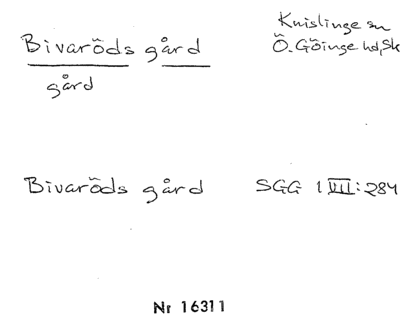 Bivaröds gård
Knislinge sn
Ö. Göinge hd, Sk
gård
Bivaröds gård
SGG 1 VIII:284
Nr 16311